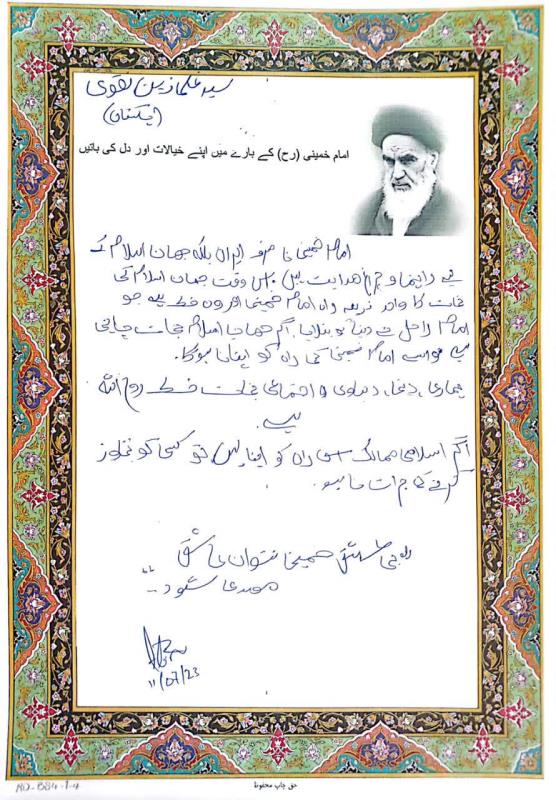 سید غلمازین نقوی
(پاکستان)
امام خمینی (رح) کے بارے میں اپنے خیالات اور دل کی باتیں
امام خمینی نا صرف ایران بلکہ جهان اسلام کے
لیے راہنما و چراغ هدایت ہیں اس وقت جهان اسلام کی
نجات کا واحد ذریعہ راہ امام خمینی فقط ہے جو
امام راحل نے دنیا کو بتلایا، اگر جهان اسلام نجات چاہتی
ہے تو اسے امام خمینی کی راہ کو اپنانا ہوگا۔
ہماری، دنیاوی و اجتماعی نجات فقط روح اللہ
ہے
اگر اسلامی ممالک اس راہ کو اپنا لیں تو کسی کو تجاوز
کرنے کی جرات نا ہو۔
بی عشق خمینی نتوان عاشق
مهدی شد
11/07/23
AD-884-1-4
حق چاپ محفوظ